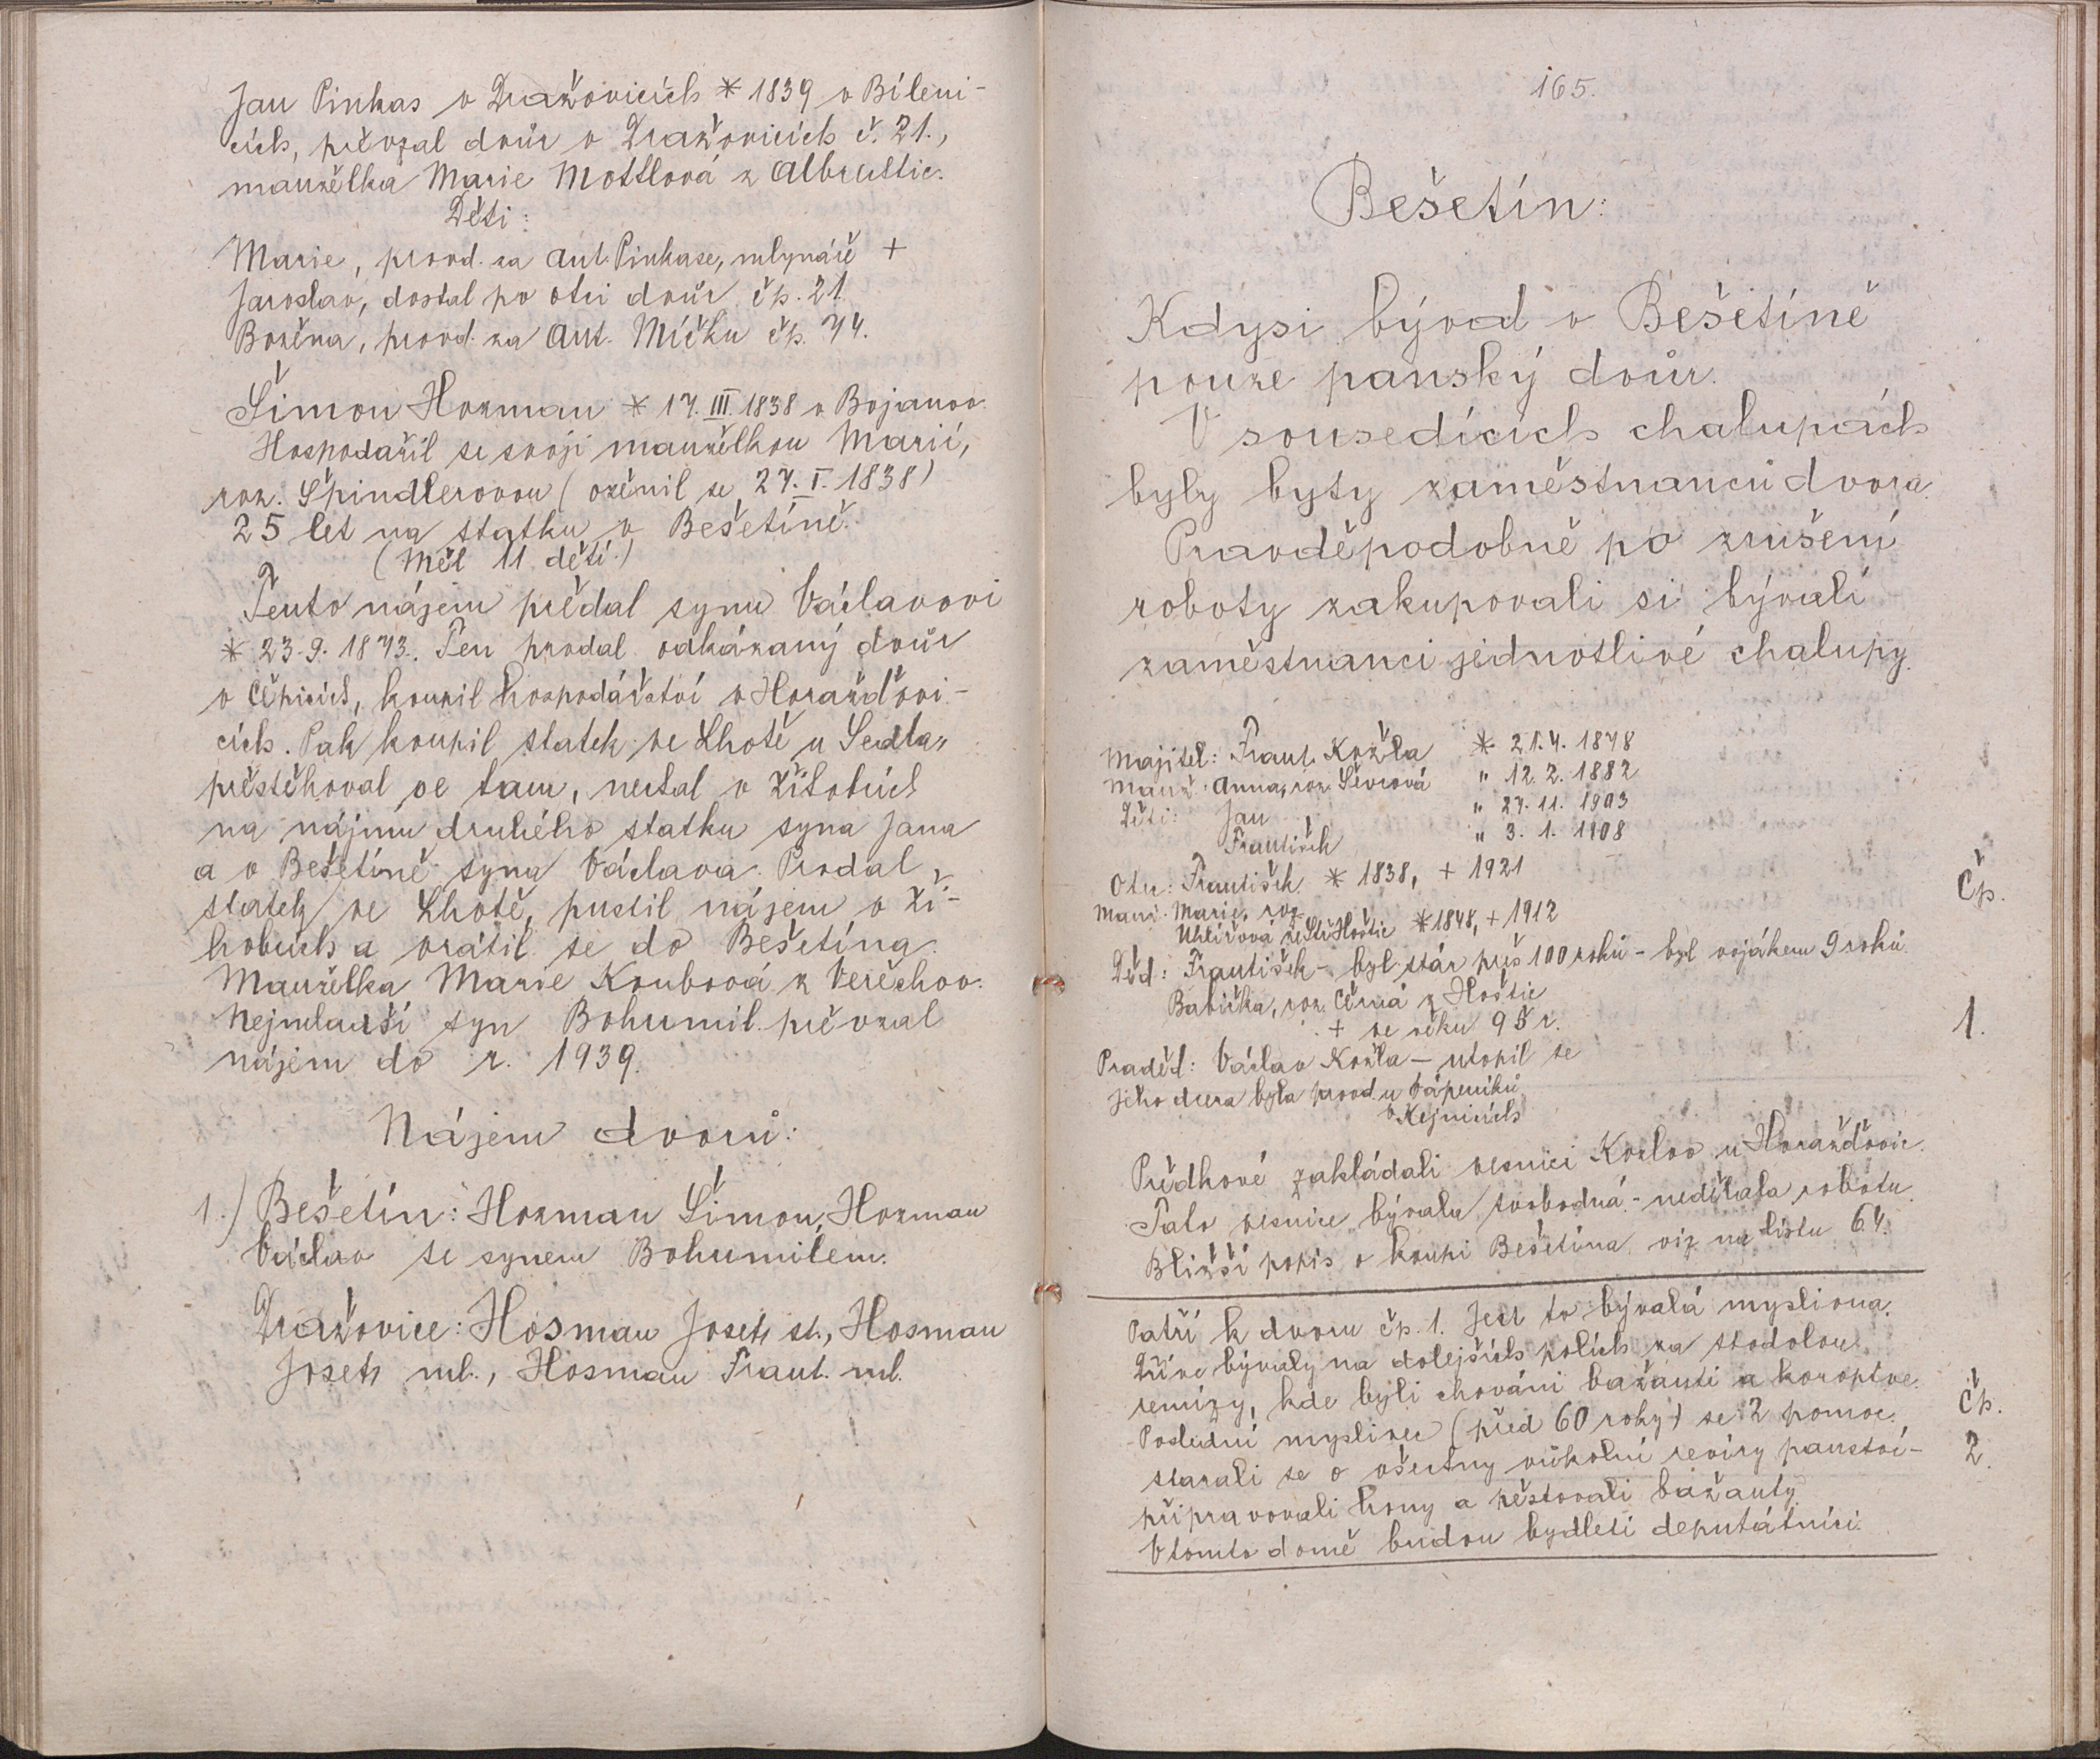 Jan Pinkas v Dražovicích * 1839 v Bíleni-
cích, převzal dvůr v Dražovicích č. 21.,
manželka Marie Mottlová z Albrechtic.
Děti:
Marie, provd. za Ant. Pinkase, mlynáře +
Jaroslav, dostal po otci dvůr čp. 21.
Božena, provd. za Ant. Míčku čp. 74.
Šimon Hozman * 17. III. 1838 v Bojanov.
Hospodařil se svojí manželkou Marií,
roz. Špindlerovou (oženil se 27. I. 1838)
25 let na statku v Bešetíně.
(Měl 11 dětí.)
Tento nájem předal synu Václavovi
* 23. 9. 1873. Ten prodal odkázaný dvůr
v Čepicích, koupil hospodářství v Horažďovi-
cích. Pak koupil statek ve Lhotě u Sedla"
přestěhoval se tam, nechal v Žihobcích
na nájmu druhého statku syna Jana
a v Bešetíně syna Václava. Prodal
statek ve Lhotě, pustil nájem v Ži-
hobcích a vrátil se do Bešetína.
Manželka Marie Koubová z Veřechov.
Nejmladší syn Bohumil převzal
nájem do r. 1939.
Nájem dvorů:
1.) Bešetín: Hozman Šimon, Hozman
Václav se synem Bohumilem.
Dražovice: Hosman Josef st., Hosman
Josef ml., Hosman Frant. ml.
165.
Bešetín:
Kdysi býval v Bešetíně
pouze panský dvůr.
V sousedících chalupách
byly byty zaměstnanců dvora.
Pravděpodobně po zrušení
roboty zakupovali si bývalí
zaměstnanci jednotlivé chalupy.
Majitel: Frant. Kozla * 21. 4. 1878
Manž. Anna, roz. Ševcová " 12. 2. 1882
Děti: Jan " 27. 11. 1903
František " 3. 1. 1908
Otec: František * 1838, + 1921
Čp.
1.
Manž. Marie, roz.
Uhlířová ze Hoštic * 1848, + 1912
Děd: František - byl stár přes 100 roků - byl vojákem 9 roků
Babička, roz. Černá z Hoštic
+ ve věku 95 r.
Praděd: Václav Kozla - utopil se
Jeho dcera byla provd. u Vápeníků
v Kejnicích
Předkové zakládali vesnici Kozlov u Horažďovic.
Tato vesnice bývala svobodná - nedělala robotu.
Bližší popis o koupi Bešetína viz na listu 64.
Patří k dvoru čp. 1. Jest to bývalá myslivna.
Dříve bývaly na dolejších polích za stodolou
remízy, kde byli chováni bažanti a koroptve.
Čp.
2.
Poslední myslivec (před 60 roky) se 2 pomoc.
starali se o všechny vůkolní revíry panství -
připravovali hony a pěstovali bažanty.
V tomto domě budou bydleti deputátníci.